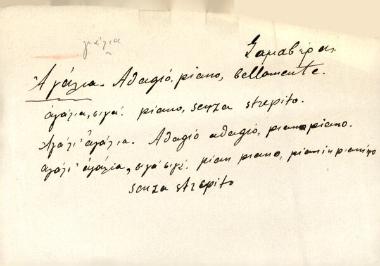 γιάγλια
Σαμαβέρα.
Ἀγάλια. Adagio, piano, bellamente.
ἀγάλια, σιγά: piano, senza strepito.
Ἀγάλι' ἀγάλια. Adagio adagio, piano piano.
ἀγάλι' ἀγάλια, σιγὰ σιγά: pian piano, pianin pianino
senza strepito